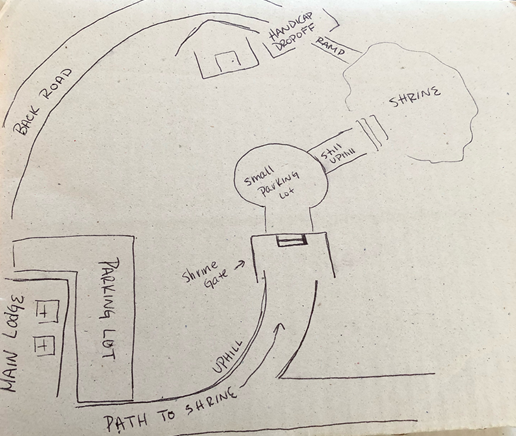 HANDICAP
DROPOFF
RAMP
BACK ROAD
SHRINE
Still
UPHill
Small
PARKING
Lot
Shrine
Gate
PARKING LOT
MAIN LODGE
UPHILL
PATH TO SHRINE